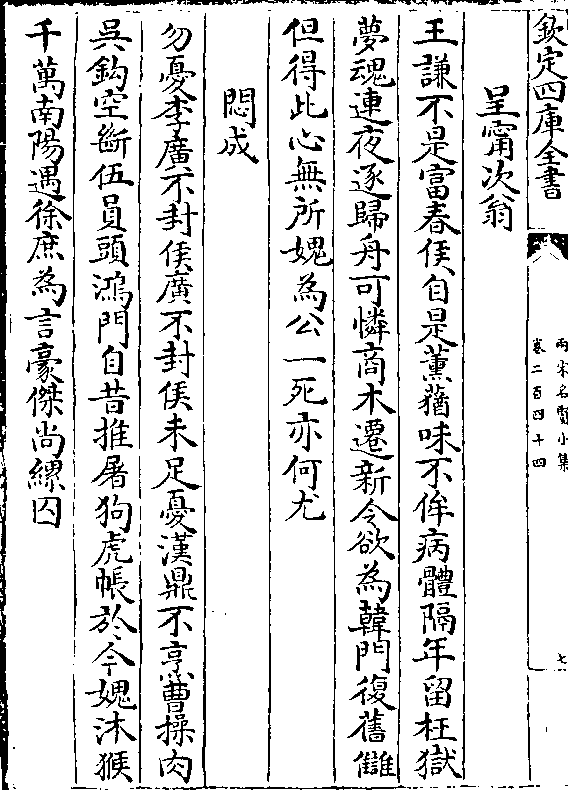 欽定四庫全書
兩宋名賢小集
卷二百四十四
七
呈甯次翁
王謙不是富春侯自是薰蕕味不侔病體隔年留枉獄
夢魂連夜逐歸舟可憐商木遷新令欲為韓門復舊讎
但得此心無所媿為公一死亦何尤
悶成
勿憂李廣不封侯廣不封侯未足憂漢鼎不烹曹操肉
吳鈎空斷伍員頭鴻門自昔推屠狗虎帳於今媿沐猴
千萬南陽遇徐庶為言豪傑尚纍囚